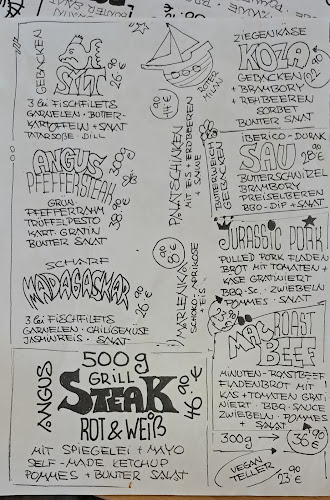 GEBACKEN
SYLT
26.90 €
3 erlei FISCHFILETS
GARNELEN · BUTTER-
KARTOFFELN + SALAT
TATARSOßE · DILL
ANGUS 300g
PFEFFERSTEAK
GRÜN.
PFEFFERRAHM
TRÜFFELPESTO
KART. GRATIN
BUNTER SALAT
38.90 €
SCHARF
MADAGASKAR
3 erlei FISCHFILETS
GARNELEN · CHILIGEMÜSE
JASMINREIS · SALAT
26.90 €
ANGUS
500g
GRILL
STEAK
ROT & WEIß
46.90 €
MIT SPIEGELEI + MAYO
SELF-MADE KETCHUP
POMMES + BUNTER SALAT
ROTER
MILAN
PALATSCHINKEN
MIT EIS + ERDBEEREN
+ SAUCE
MARILLENKN.
SCHOKO · APRIKOSE
+ EIS
8.90 €
ZIEGENKÄSE
KOZA
GEBACKEN
+ BRAMBORY
+ REHBEEREN
SORBET
BUNTER SALAT
IBERICO-DUROK
SAU
28.90
BUTTERSCHNITZEL
BRAMBORY
PREISELBEEREN
BBQ-DIP + SALAT
BUTTERWEICH
GEBACKEN
JURASSIC PORK
PULLED PORK FLADEN
BROT MIT TOMATEN +
KÄSE GRATINIERT
BBQ-SC. · ZWIEBELN
POMMES · SALAT
MAC ROAST
BEEF
MINUTEN-ROASTBEEF
FLADENBROT MIT
KÄS + TOMATEN GRATI
NIERT · BBQ-SAUCE
ZWIEBELN · POMMES
+ SALAT
300g → 36.90
VEGAN
TELLER
23.90